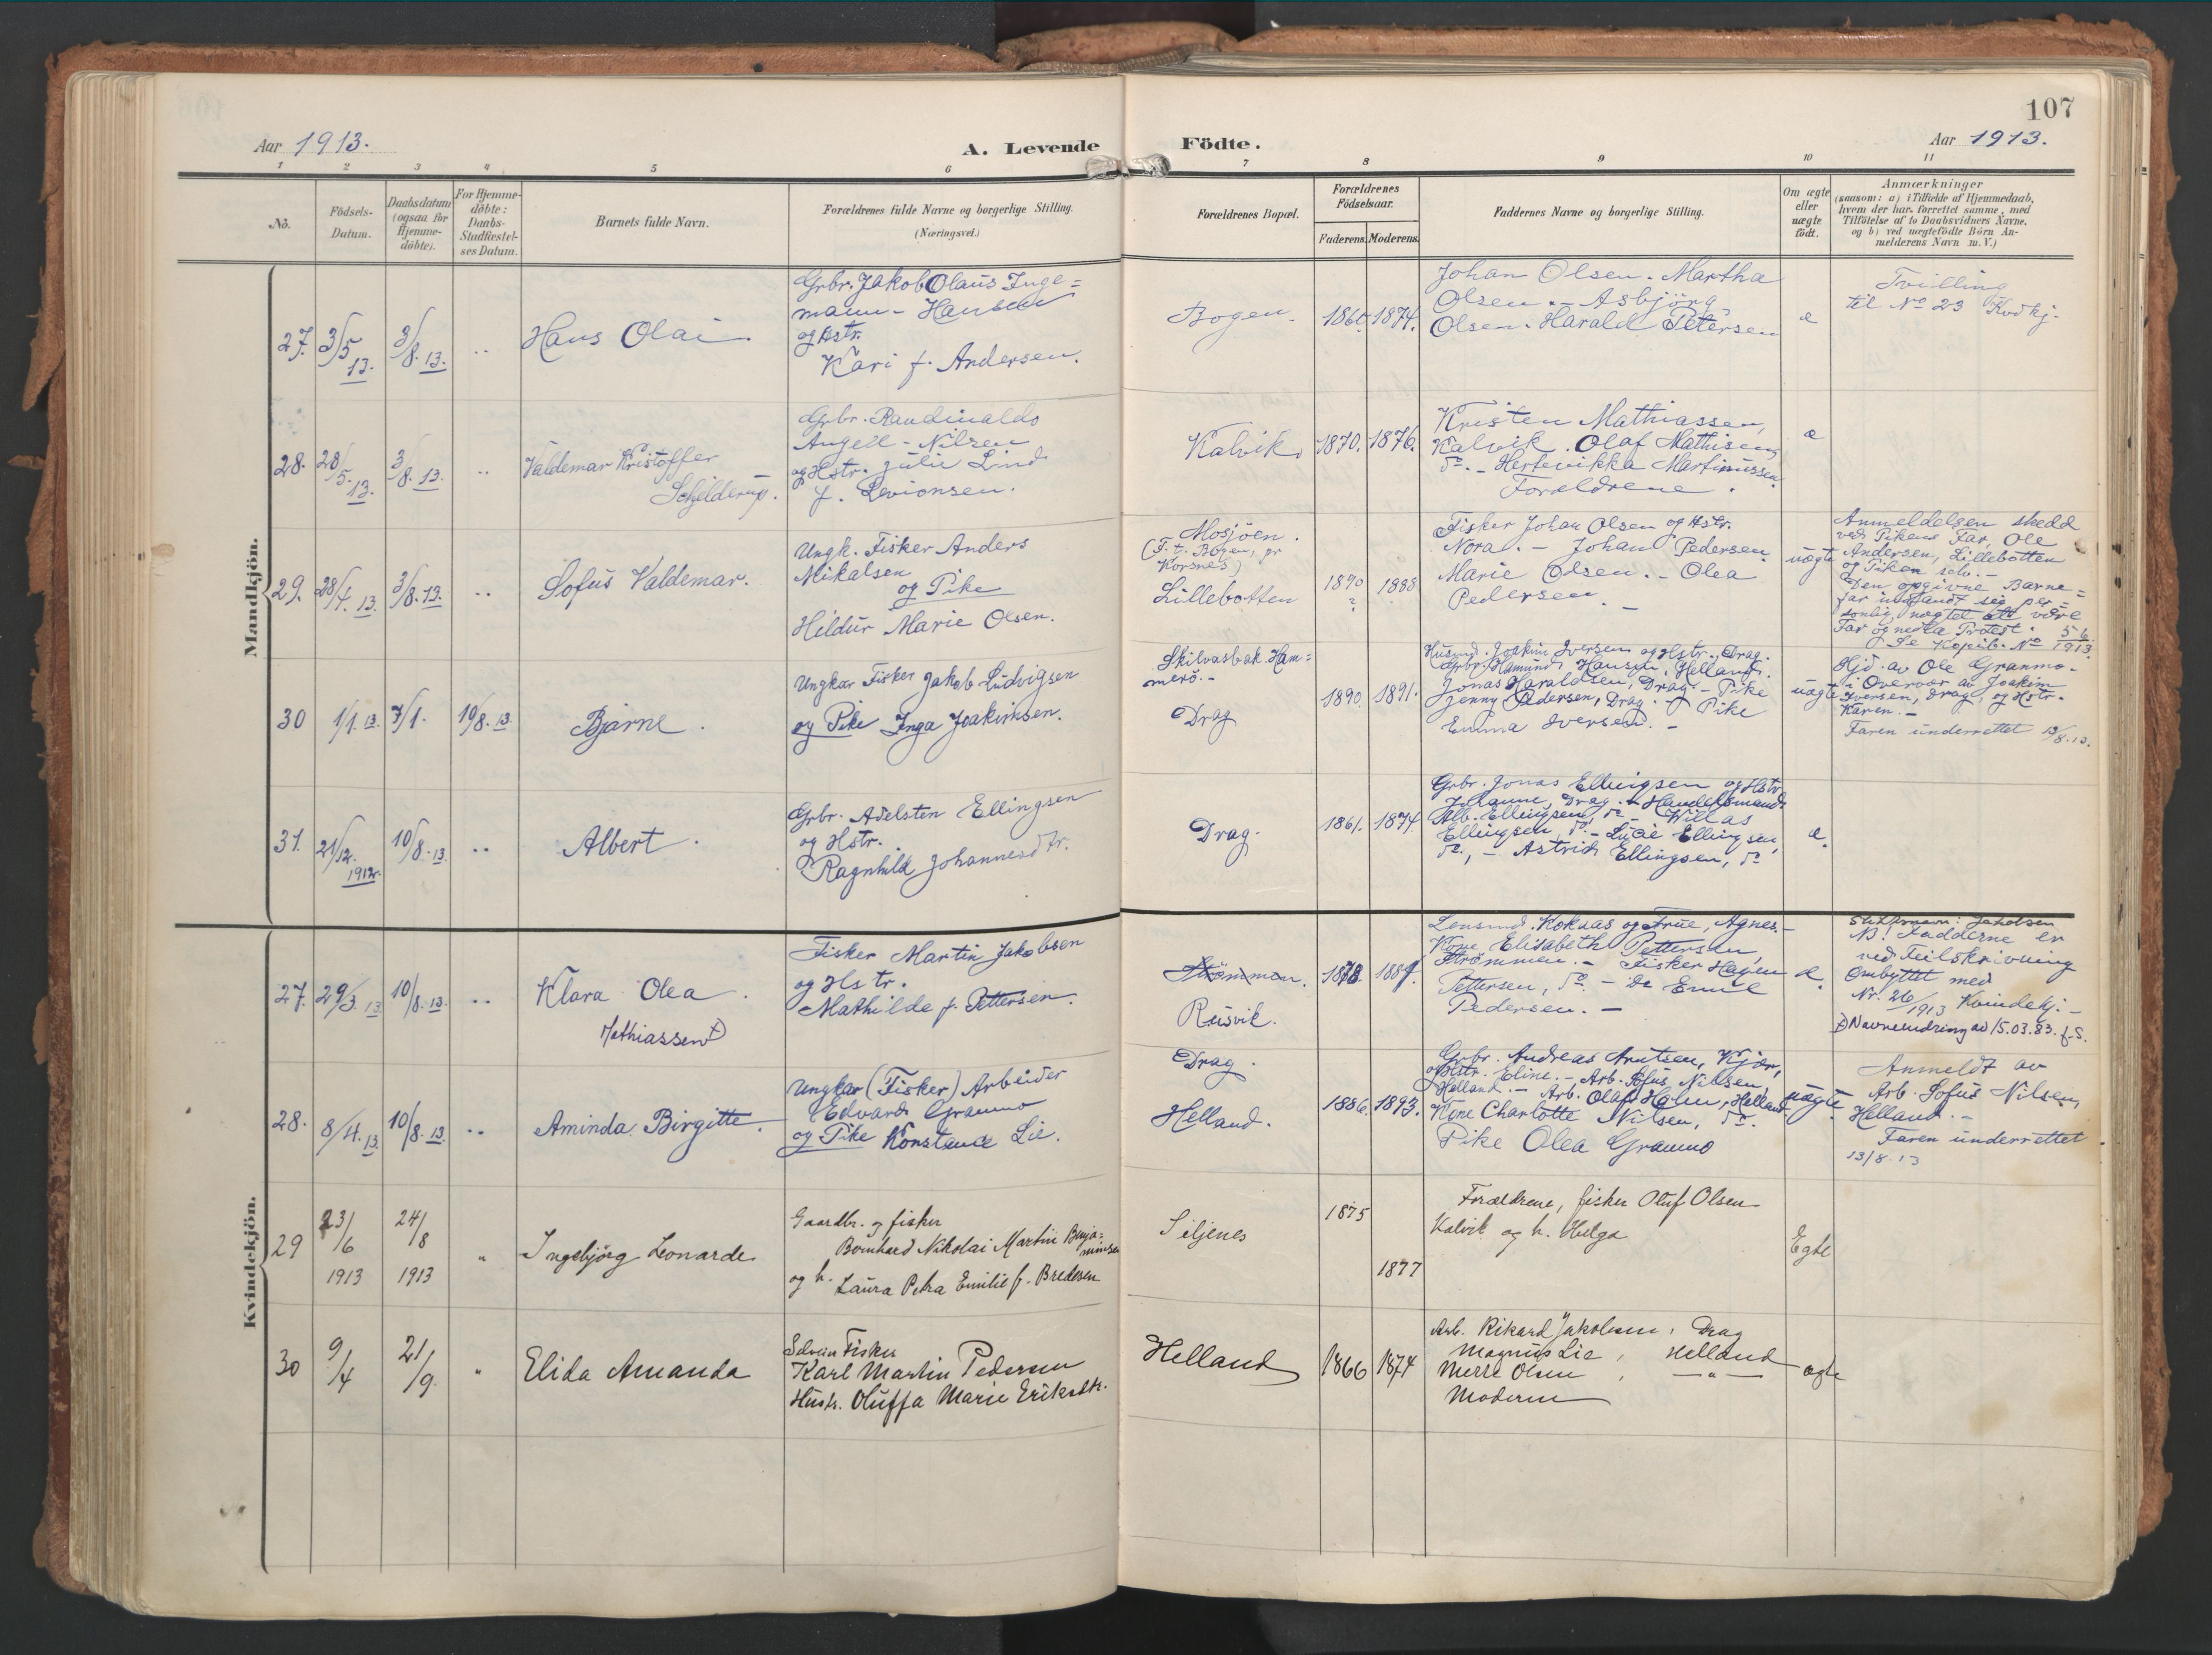 107
Aar 1913.
A. Levende
Födte.
Aar 1913.
1 2 3 4 5 6 7 8 9 10 11
No.
Födsels-
Datum.
Daabsdatum
(ogsaa for
Hjemme-
döbte).
For Hjemme-
döbte:
Daabs-
Stadfæstel-
ses Datum.
Barnets fulde Navn.
Forældrenes fulde Navne og borgerlige Stilling.
(Næringsvei.)
Forældrenes Bopæl.
Forældrenes
Födselsaar.
Faderens.
Moderens.
Faddernes Navne og borgerlige Stilling.
Om ægte
eller
uægte
født.
Anmærkninger
(saasom: a) i Tilfælde af Hjemmedaab,
hvem der har forrettet samme, med
Tilföielse af to Daabsvidners Navne.
og b) ved uægtefödte Börn An-
melderens Navn m. V.)
Mandkjön.
27. 3/5 13. 3/8. 13. ..
Hans Olai.
Grbr. Jakob Olaus Inge=
mann - Hansen
og Hstr.
Kari f. Andersen.
Bogen.
1860. 1874.
Johan Olsen. Martha
Olsen. - Asbjörg
Olsen. Harald Petersen
e
Tvilling
til No 23 Kvdkj.
28. 28/5. 13. 3/8. 13. ..
Valdemar Kristoffer
Schjelderup.
Grbr. Randinaldo
Angell - Nilsen
og Hstr. Julie Lind
f. Levionsen.
Kalvik.
1870. 1876.
Kristen Mathiassen,
Kalvik. Olaf Mathisen
do. - Hertevikka Martinussen.
Forældrene.
e
29. 28/4. 13. 3/8. 13. ..
Sofus Valdemar.
Ungk. Fisker Anders
Mikalsen
og Pike
Hildur Marie Olsen.
Mosjöen.
(F. t. Bogen, pr
Korsnes)
Lillebotten
1890 ? 1888
Fisker Johan Olsen og Hstr.
Nora. - Johan Pedersen
Marie Olsen. - Olea
Pedersen. -
uægte
Anmeldelsen skedd
ved Pikens Far, Ole
Andersen, Lillebotten
og Piken selv. -
Den opgivne Barne=
far indfandt sig per=
sonlig, nægtet att være
Far og nedla Protest.
Se Kopib. No 56/1913.
30 1/1. 13. 7/1. 10/8. 13.
Bjarne.
Ungkar Fisker Jakob Ludvigsen
og Pike Inga Joakimsen.
Skilvasbak Ham=
merö. -
Drag
1890. 1891.
Husmd. Joakim Iversen og Hstr., Drag.
Grbr. Hamund Hansen, Helland.
Jonas Haraldsen, Drag. - Pike
Jenny Pedersen, Drag. - Pike
Emma Iversen. -
uægte
Hjd. av Ole Granmo.
i Overvær av Joakim
Iversen, Drag, og Hstr.
Karen. -
Faren underrettet 13/8. 13.
31. 21/12. 1912. 10/8. 13. ..
Albert.
Grbr. Adelsten Ellingsen
og Hstr.
Ragnhild Johannesdtr.
Drag.
1861. 1874.
Grbr. Jonas Ellingsen og Hstr
Johanne, Drag. - Handelsmand
Alb. Ellingsen, do - Willas
Ellingsen, do. - Lucie Ellingsen,
do., - Astrid Ellingsen, do
e.
Kvindekjön.
27. 29/3. 13. 10/8. 13. ..
Klara Olea.
Mathiassen
Fisker Martin Jakobsen
og Hstr.
Mathilde f. Pettersen.
Strömmen.
Rüsvik.
1878. 1887.
Lensmd. Koknas og Frue, Agnes. -
Kone Elisabeth Pettersen,
Strömmen. - Fisker Hagen
Pettersen, do. - Do Emil
Pedersen. -
e.
Slektsnavn: Jakobsen
NB! Fadderne er
ved Feilskrivning
Ombyttet med
Nr. 26/1913 Kvindekj. -
Navneendring av 15.03.83. f.S.
28. 8/4. 13 10/8. 13. ..
Aminda Birgitte.
Ungkar (Fisker) Arbeider
Edvard Granmo
og Pike Konstance Lie.
Drag.
Helland.
1886. 1893.
Grbr. Andreas Arntsen, Kjær,
og Hstr. Eline. -, Arb. Sofus Nilsen,
Helland. - Arb. Olaf Holm, Helland
Kone Charlotte Nilsen, do.
Pike Olea Granmo
uægte
Anmeldt av
Arb. Sofus Nilsen,
Helland. -
Faren underrettet
13/8. 13
29 23/6 1913 24/8 1913 "
Ingebjörg Leonarde
Gaardbr. og fisker
Bernhard Nikolai Martin Benja=
minsen
og h. Laura Petra Emilie f. Bredesen
Siljenes
1875 1877
Forældrene, fisker Oluf Olsen
Kalvik og h. Helga
Egte
30 9/4 21/9. "
Elida Amanda
Selveier Fisker
Karl Martin Pedersen
Hustr. Oluffa Marie Eriksdtr.
Helland
1866 1874
Arb. Rikard Jakobsen, Drag
Magnus Lie, Helland
Merre Olsen, — " —
Moderen
ægte